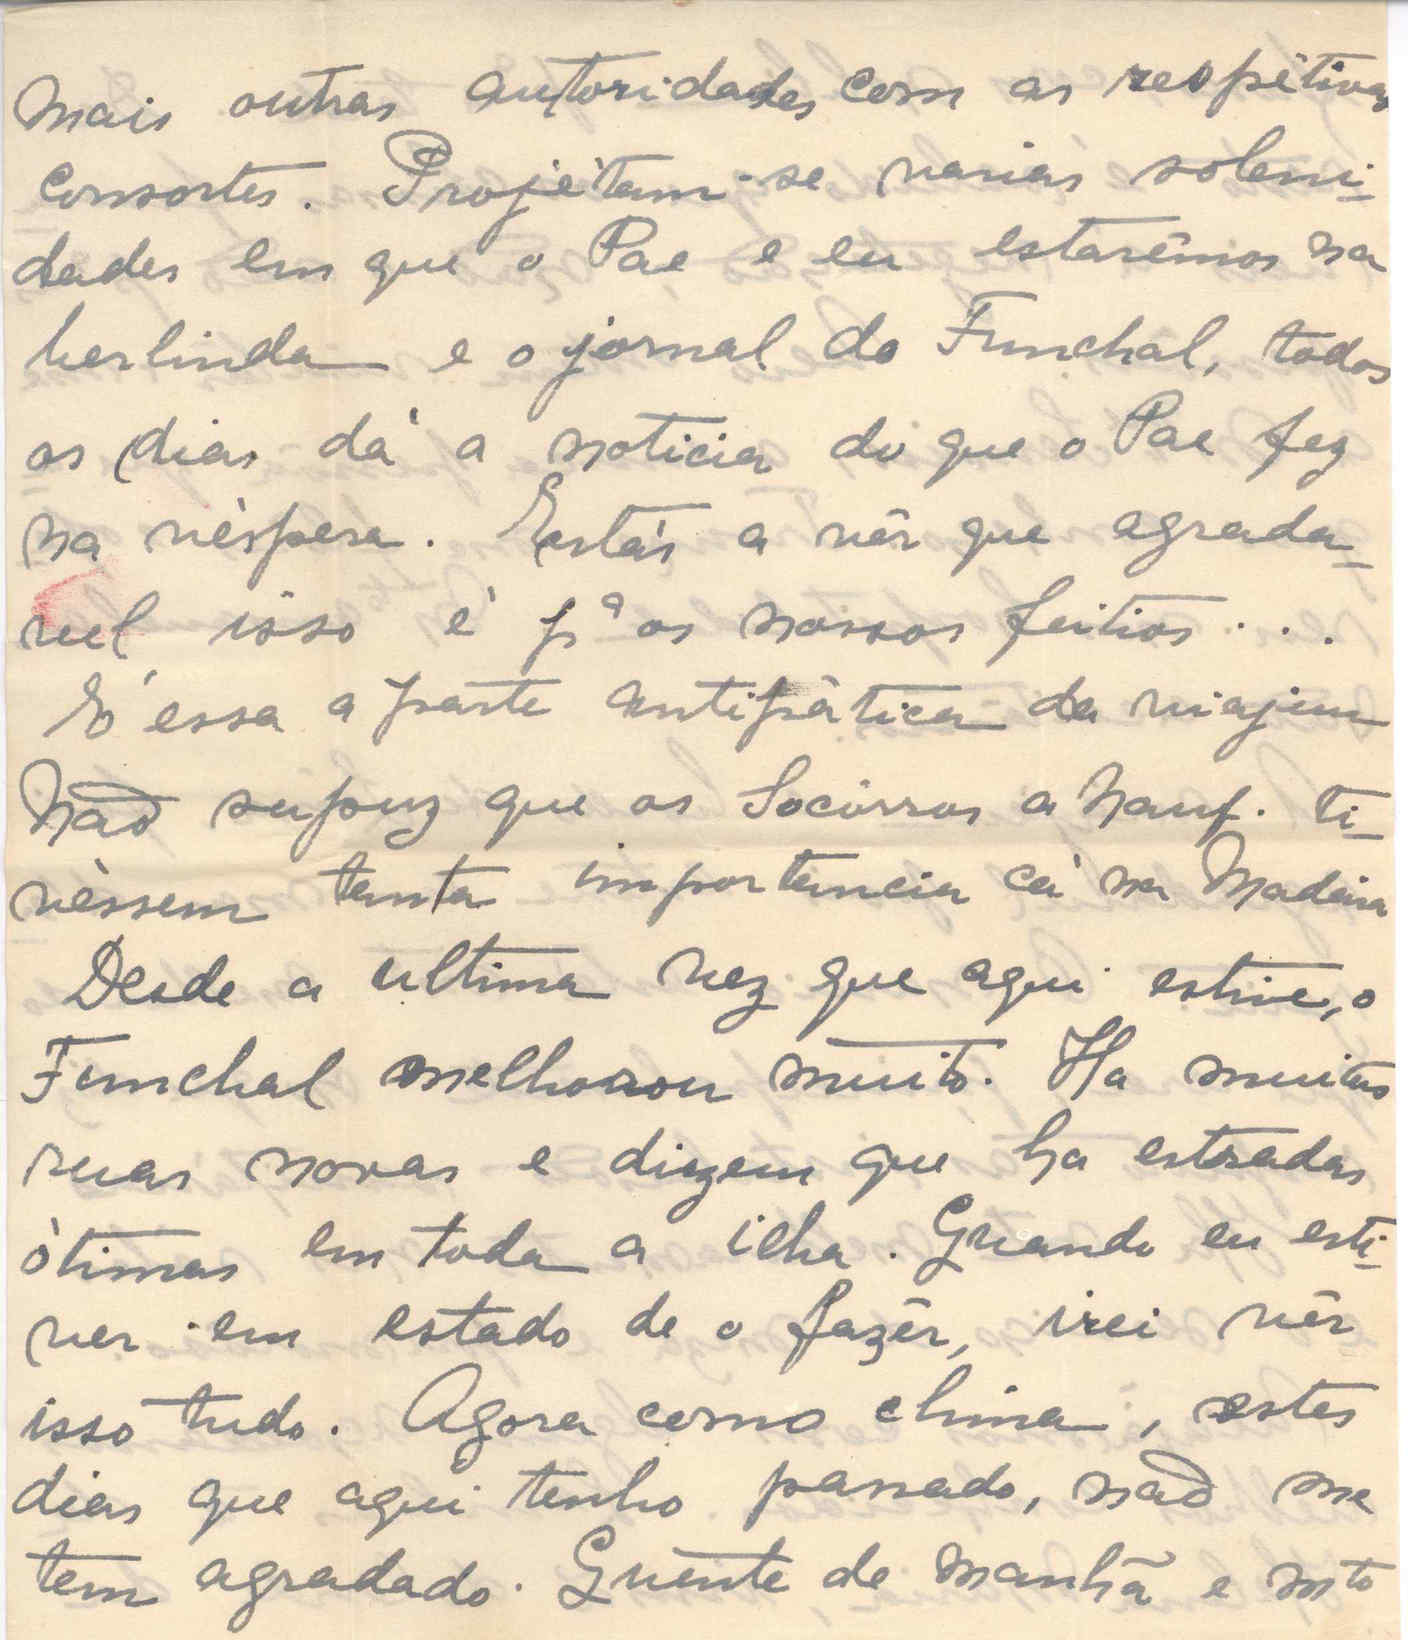 mais outras autoridades com as respétivas
consortes. Projétam-se varias soleni-
dades em que o Pae e eu estarêmos na
berlinda e o jornal do Funchal, todos
os dias dá a noticia do que o Pae fez
na vèspera. Estás a vêr que agrada-
vel isso é pª os nossos feitios...
E' essa a parte antipática da viajem
Não supuz que os Socórros a Nauf. ti-
vèssem tanta importancia cá na Madeira
Desde a ultima vez que aqui estive, o
Funchal melhorou muito. Ha muitas
ruas novas e dizem que ha estradas
òtimas em toda a ilha. Quando eu esti-
ver em estado de o fazêr, irei vêr
isso tudo. Agora como clima, estes
dias que aqui tenho passado, não me
tem agradado. Quente de manhã e mto